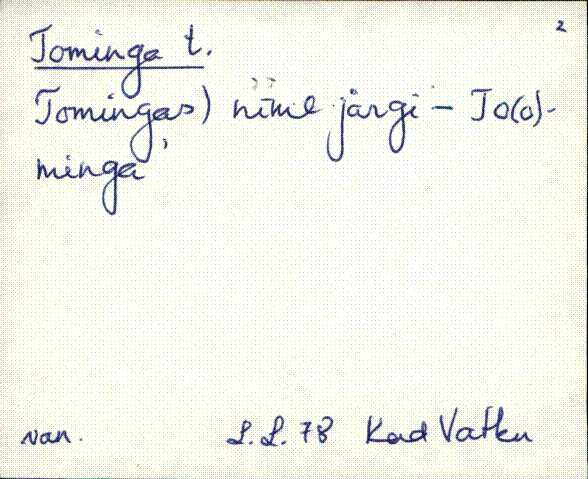 2
Tominga t.
Tomingas) nime järgi – To(o)-
minga
van. L.L. 78 Kad Vatku